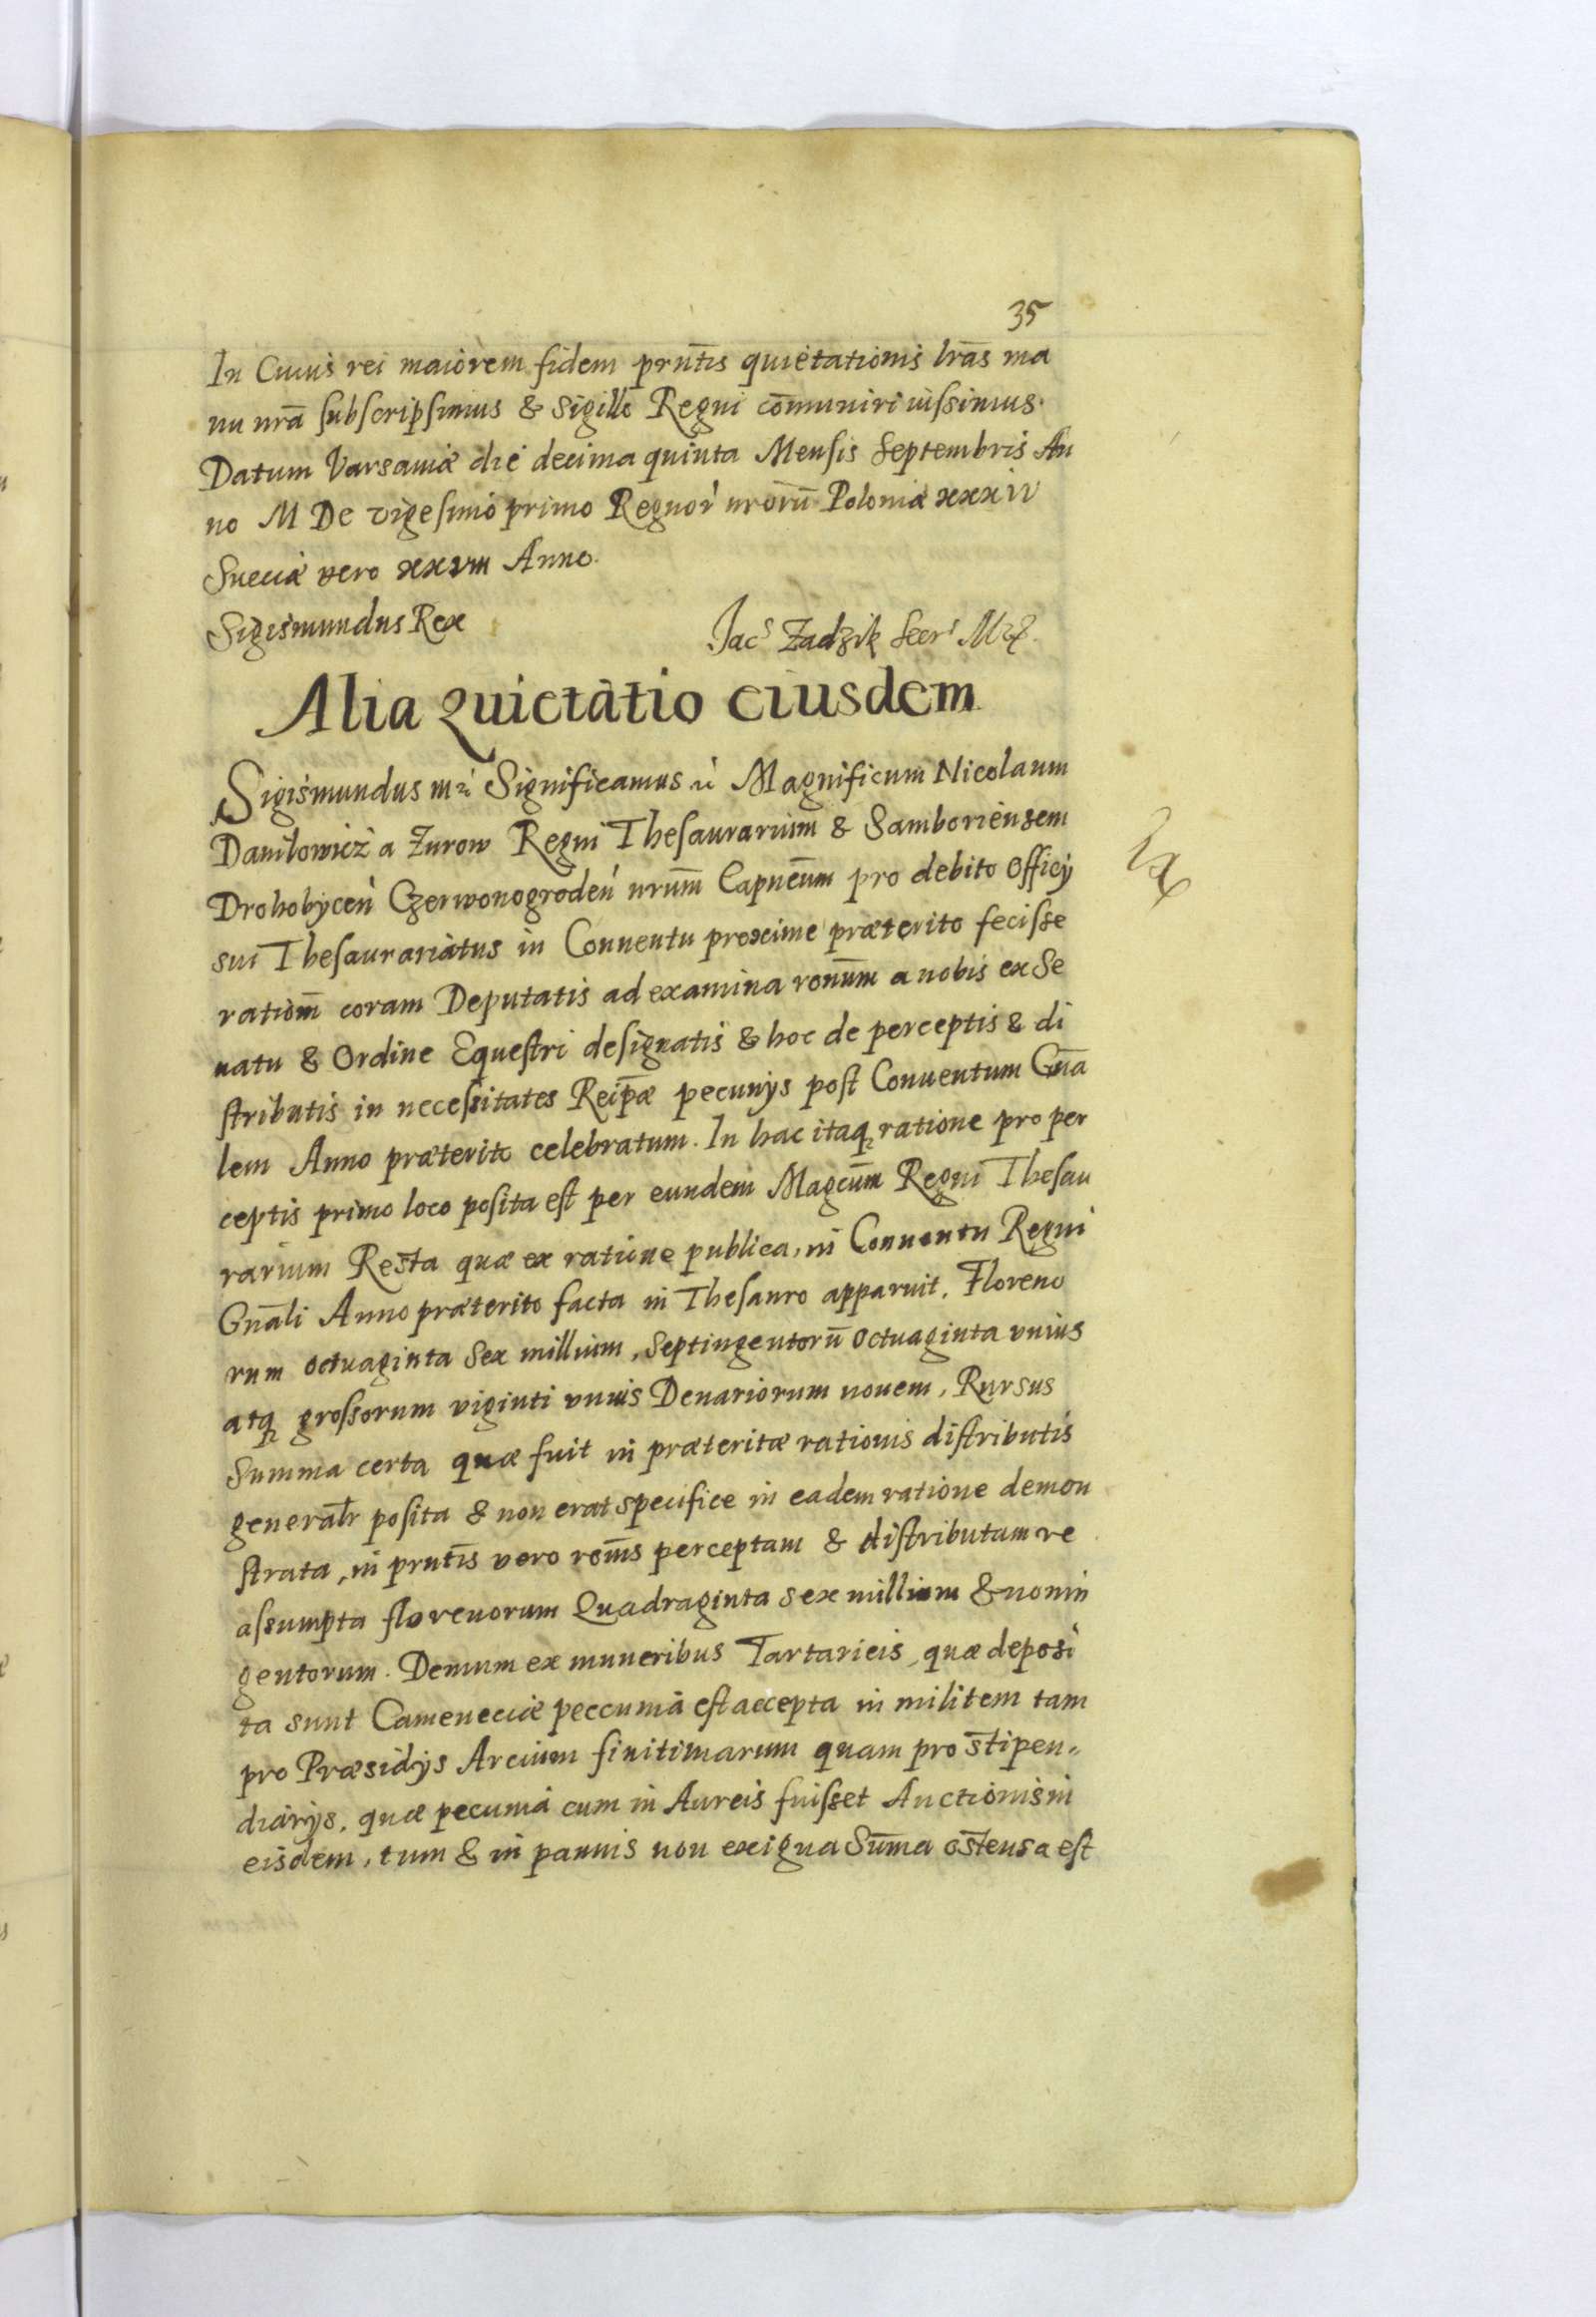 35
In Cuius rei maiorem fidem prn̄tis quietationis lrās ma
nu nrā subscripsimus & sigillo Regni cōmuniri iussimus.
Datum Varsaviæ die decima quinta Mensis Septembris An
no M De vigesimo primo Regnor̀ nrorū Poloniæ xxxiv
Sueciæ vero xxvm Anno.
Sigismundus Rex
Jacˢ Zadzik Secrˢ
Alia Quietatio eiusdem
Sigismundus Significamus Magnificum Nicolaum
Daniłowicz a Zurow Regni Thesaurarium & Samboriensem
Drohobyceń Czerwonogrodeń nrum̄ Capnēum pro debito officÿ
sui Thesaurariatus in Conventu proxime præterito fecisse
rationm̄ coram Deputatis ad examina ronūm a nobis ex Se
natu & Ordine Equestri designatis & hoc de perceptis & di
stributis in necessitates Reipǣ pecunÿs post Conventum Gnā
lem Anno præterito celebratum. In hac itaq ratione pro per
ceptis primo loco posita est per eundem Magcūm Regni Thesau
rarium Resta quæ ex ratione publica, in Conventu Regni
Gnāli Anno præterito facta in Thesauro apparuit. Floreno
rum octuaginta Sex millium, Septingentorū octuaginta vnius
atq grossorum viginti vnius Denariorum nouem, Rursus
Summa certa quæ fuit in præteritæ rationis distributis
generalr̄ posita & non erat specifice in eadem ratione demon
strata, in prntīs vero ronīs perceptam & distributam re
assumpta florenorum Quadraginta sex millium & nonin
gentorum. Demum ex muneribus Tartaricis, quæ deposi
ta sunt Cameneciæ peccunia est accepta in militem tam
pro PræsidÿsArcium finitimarum quam pro stipen„
diarÿs, quæ pecunia cum in Aureis fuisset Auctionis in
eisdem, tum & in pannis non exigua Sum̄a ostensa est